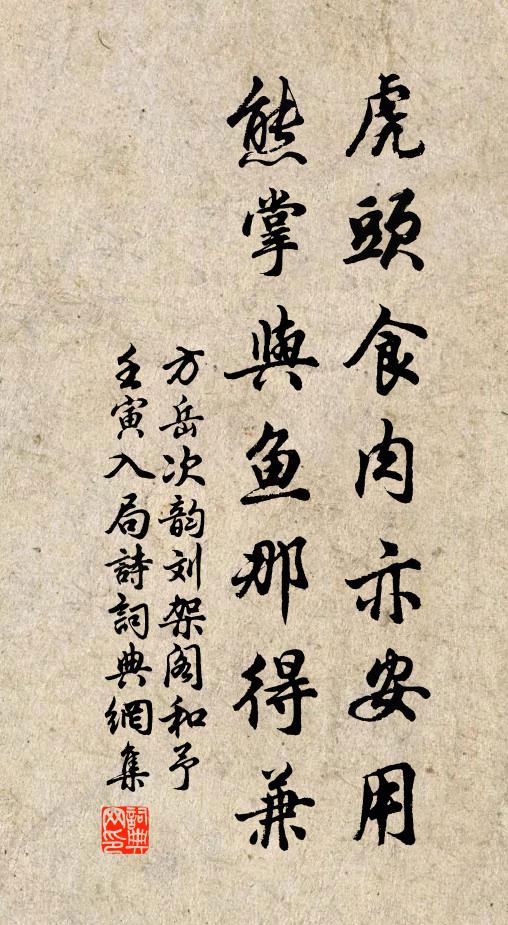 虎頭食肉亦安用
熊掌與魚那得兼
方岳次韵刘架阁和予
壬寅入局詩詞典網集
詞典网印